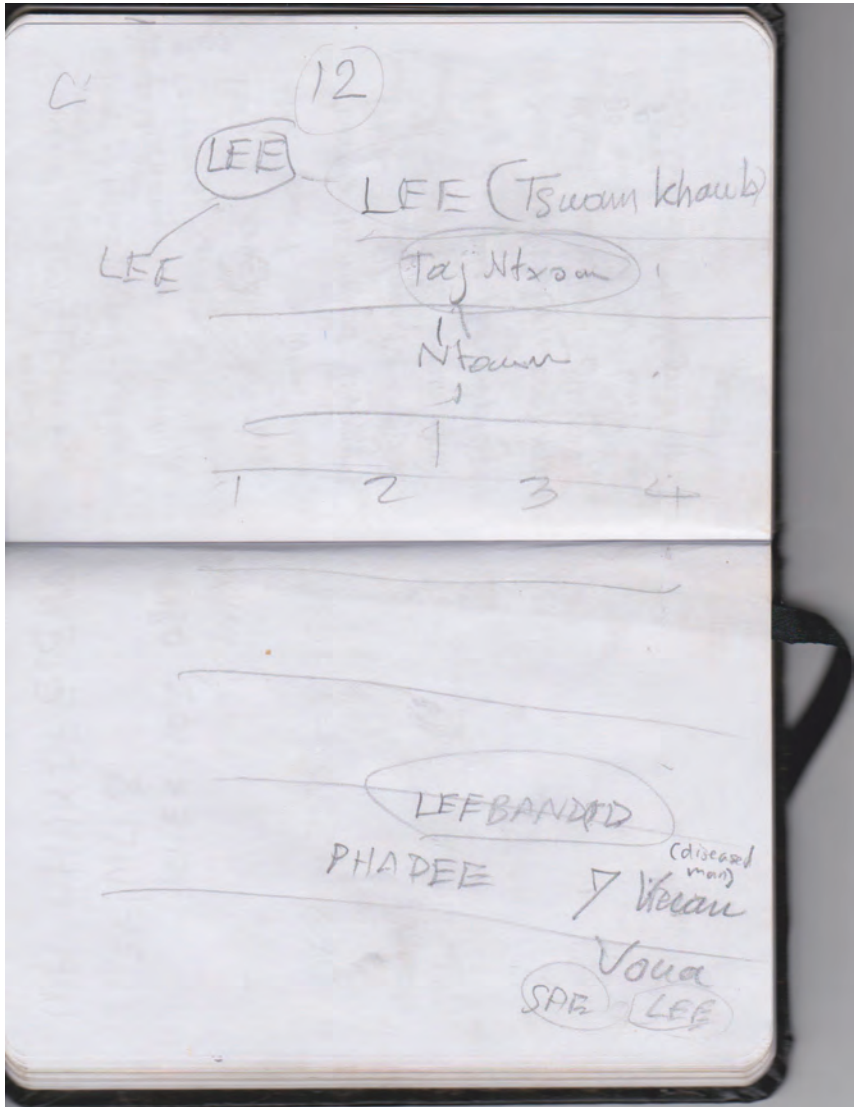 12
LEE
LEE (Tswam khaub)
LEE
Taj Ntxawm
Ntawm
1 2 3 4
LEEBANDID
PHADEE
(diseased man)
7
Voua
SAE LEE